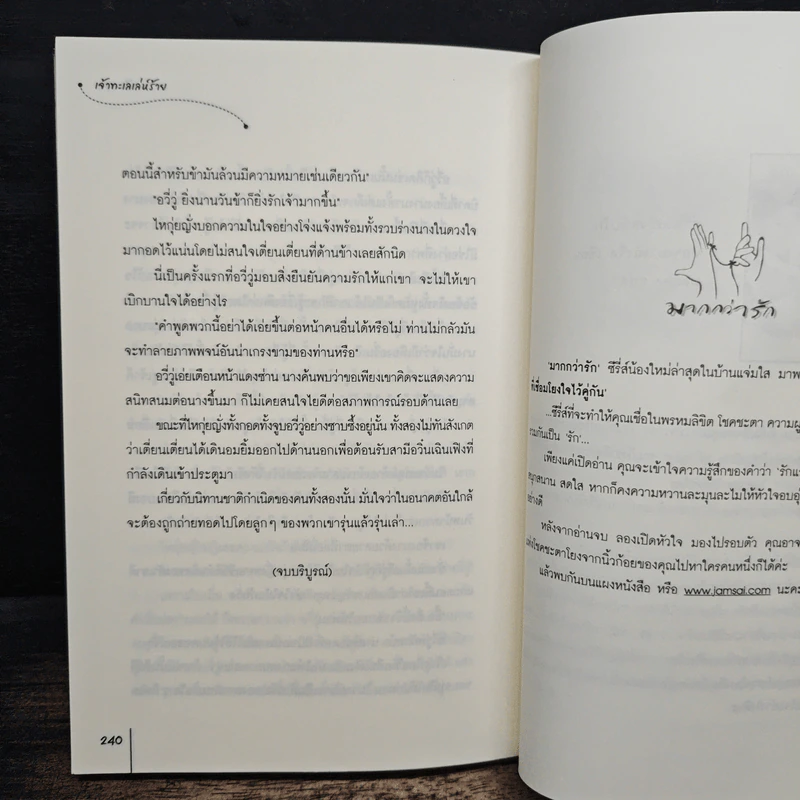 เจ้าทะเลเล่ห์ร้าย
ตอนนี้สำหรับข้ามันล้วนมีความหมายเช่นเดียวกัน"
"อวี่วู่ ยิ่งนานวันข้าก็ยิ่งรักเจ้ามากขึ้น"
ไหกุ่ยญั่งบอกความในใจอย่างโจ่งแจ้งพร้อมทั้งรวบร่างนางในดวงใจ
มากอดไว้แน่นโดยไม่สนใจเตี่ยนเตี่ยนที่ด้านข้างเลยสักนิด
นี่เป็นครั้งแรกที่อวี่วู่มอบสิ่งยืนยันความรักให้แก่เขา จะไม่ให้เขา
เบิกบานใจได้อย่างไร
"คำพูดพวกนี้อย่าได้เอ่ยขึ้นต่อหน้าคนอื่นได้หรือไม่ ท่านไม่กลัวมัน
จะทำลายภาพพจน์อันน่าเกรงขามของท่านหรือ"
อวี่วู่เอ่ยเตือนหน้าแดงซ่าน นางค้นพบว่าขอเพียงเขาคิดจะแสดงความ
สนิทสนมต่อนางขึ้นมา ก็ไม่เคยสนใจไยดีต่อสภาพการณ์รอบด้านเลย
ขณะที่ไหกุ่ยญั่งทั้งกอดทั้งจูบอวี่วู่อย่างซาบซึ้งอยู่นั้น ทั้งสองไม่ทันสังเกต
ว่าเตี่ยนเตี่ยนได้เดินอมยิ้มออกไปด้านนอกเพื่อต้อนรับสามีอวิ๋นเฉินเฟิงที่
กำลังเดินเข้าประตูมา
เกี่ยวกับนิทานชาติกำเนิดของคนทั้งสองนั้น มั่นใจว่าในอนาคตอันใกล้
จะต้องถูกถ่ายทอดไปโดยลูกๆ ของพวกเขารุ่นแล้วรุ่นเล่า...
(จบบริบูรณ์)
240
มากกว่ารัก
'มากกว่ารัก' ซีรี่ส์น้องใหม่ล่าสุดในบ้านแจ่มใส
ที่เชื่อมโยงใจไว้คู่กัน'
...ซีรี่ส์ที่จะทำให้คุณเชื่อในพรหมลิขิต โชคชะตา
เป็น 'รัก'...
เพียงแค่เปิดอ่าน คุณจะเข้าใจความรู้สึกของคำว่า
สนุกสนาน สดใส หากก็คงความหวานละมุนละไมให้หัวใจ
อย่างดี
หลังจากอ่านจบ ลองเปิดหัวใจ มองไปรอบตัว
โชคชะตาโยงจากนิ้วก้อยของคุณไปหาใครคนหนึ่งก็ได้ค่ะ
แล้วพบกันบนแผงหนังสือ หรือ www.jamsai.com นะคะ